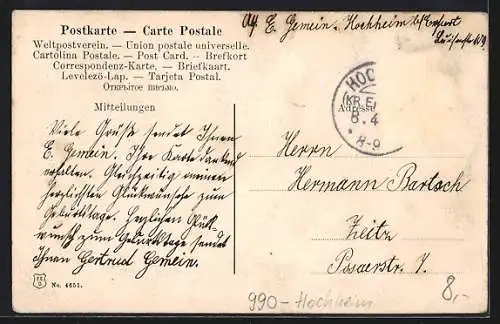 Abs. E. Gemein. Hochheim b/Erfurt
Postkarte — Carte Postale
Weltpostverein. — Union postale universelle.
Cartolina Postale. — Post Card. — Brefkort
Correspondenz-Karte. — Briefkaart.
Levelező-Lap. — Tarjeta Postal.
Открытое письмо.
Mitteilungen
Adresse
HOC
(KR.E
8.4
* 8-9
Viele Grüße sendet Ihnen
E. Gemein. Ihre Karte dankend
erhalten. Gleichzeitig meinen
herzlichsten Glückwunsch zum
Geburtstage. Herzlichen Glück-
wunsch zum Geburtstage sendet
Ihnen Gertrud Gemein.
Herrn
Hermann Bartsch
Zeitz
Posaerstr. 7.
No. 4655.
990 - Hochheim
8,-